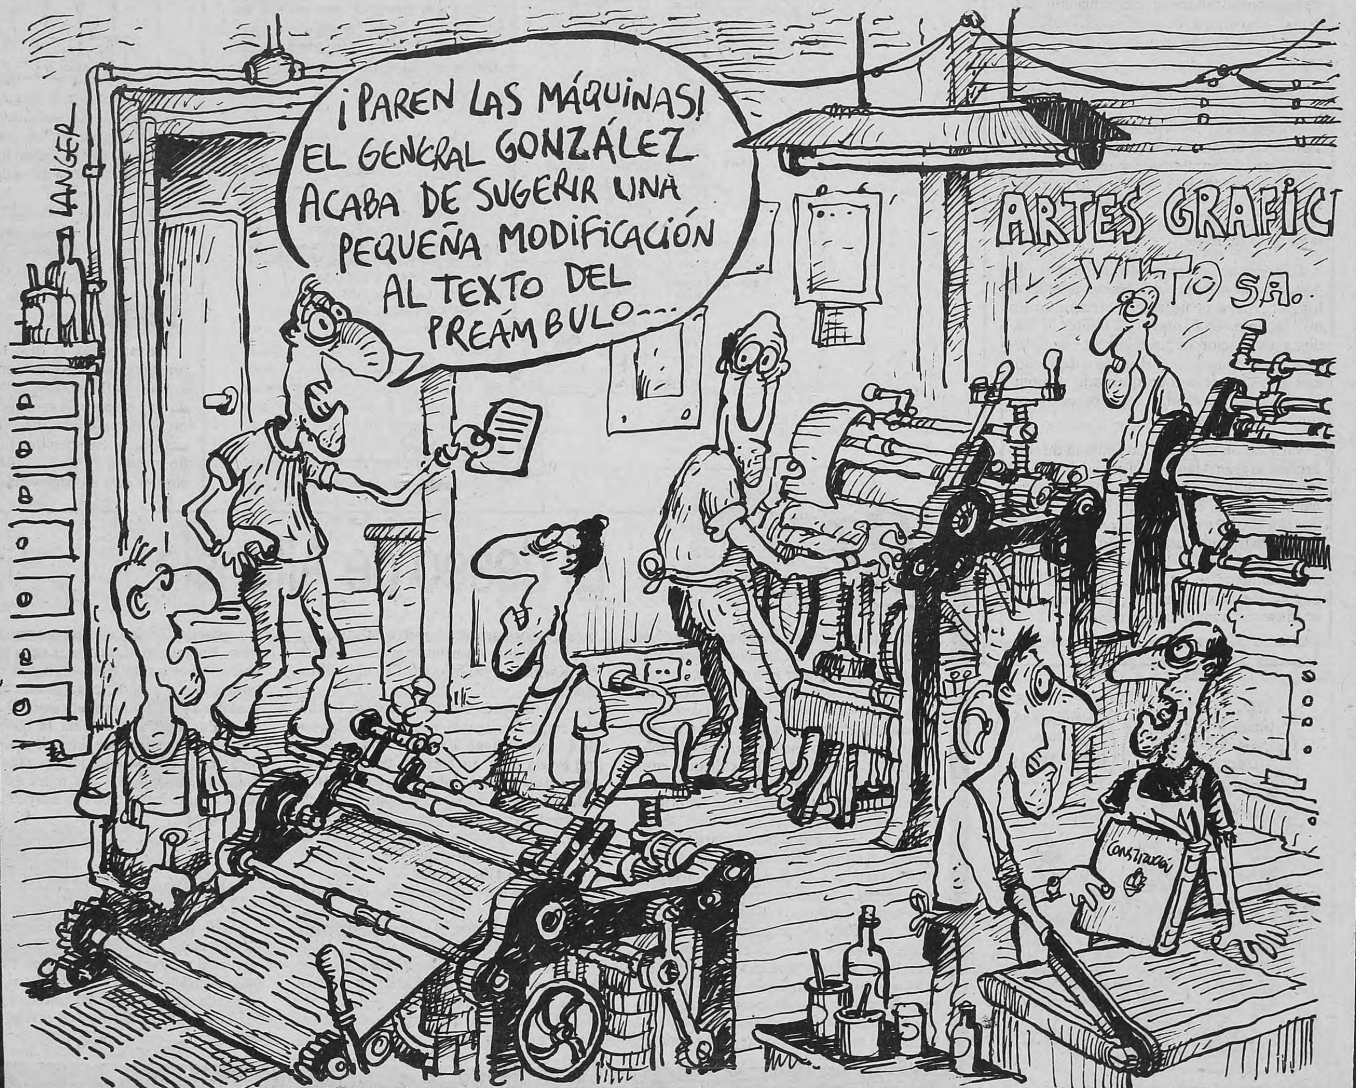 ¡PAREN LAS MÁQUINAS!
EL GENERAL GONZÁLEZ
ACABA DE SUGERIR UNA
PEQUEÑA MODIFICACIÓN
AL TEXTO DEL
PREÁMBULO...
LANGER
ARTES GRAFIC
VITO SA.
CONSTITUCIÓN